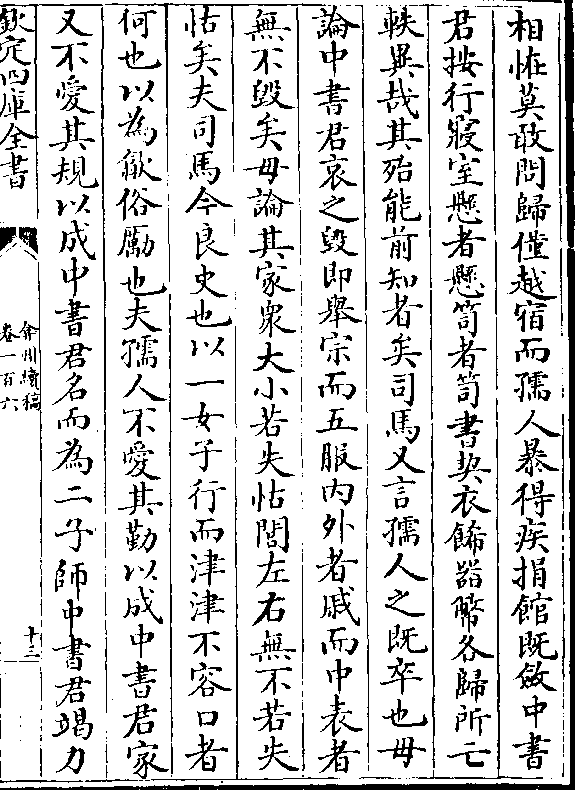 相恠莫敢問歸僅越宿而孺人暴得疾捐館既斂中書
君按行寢室懸者懸笥者笥書契衣餙器幣各歸所亡
軼異哉其殆能前知者矣司馬又言孺人之既卒也毋
論中書君哀之毀即舉宗而五服内外者戚而中表者
無不毀矣毋論其家衆大小若失怙閭左右無不若失
怙矣夫司馬今良史也以一女子行而津津不容口者
何也以為歙俗勵也夫孺人不愛其勤以成中書君家
又不愛其規以成中書君名而為二子師中書君竭力
欽定四庫全書
弇州續稿
卷一百六
十三